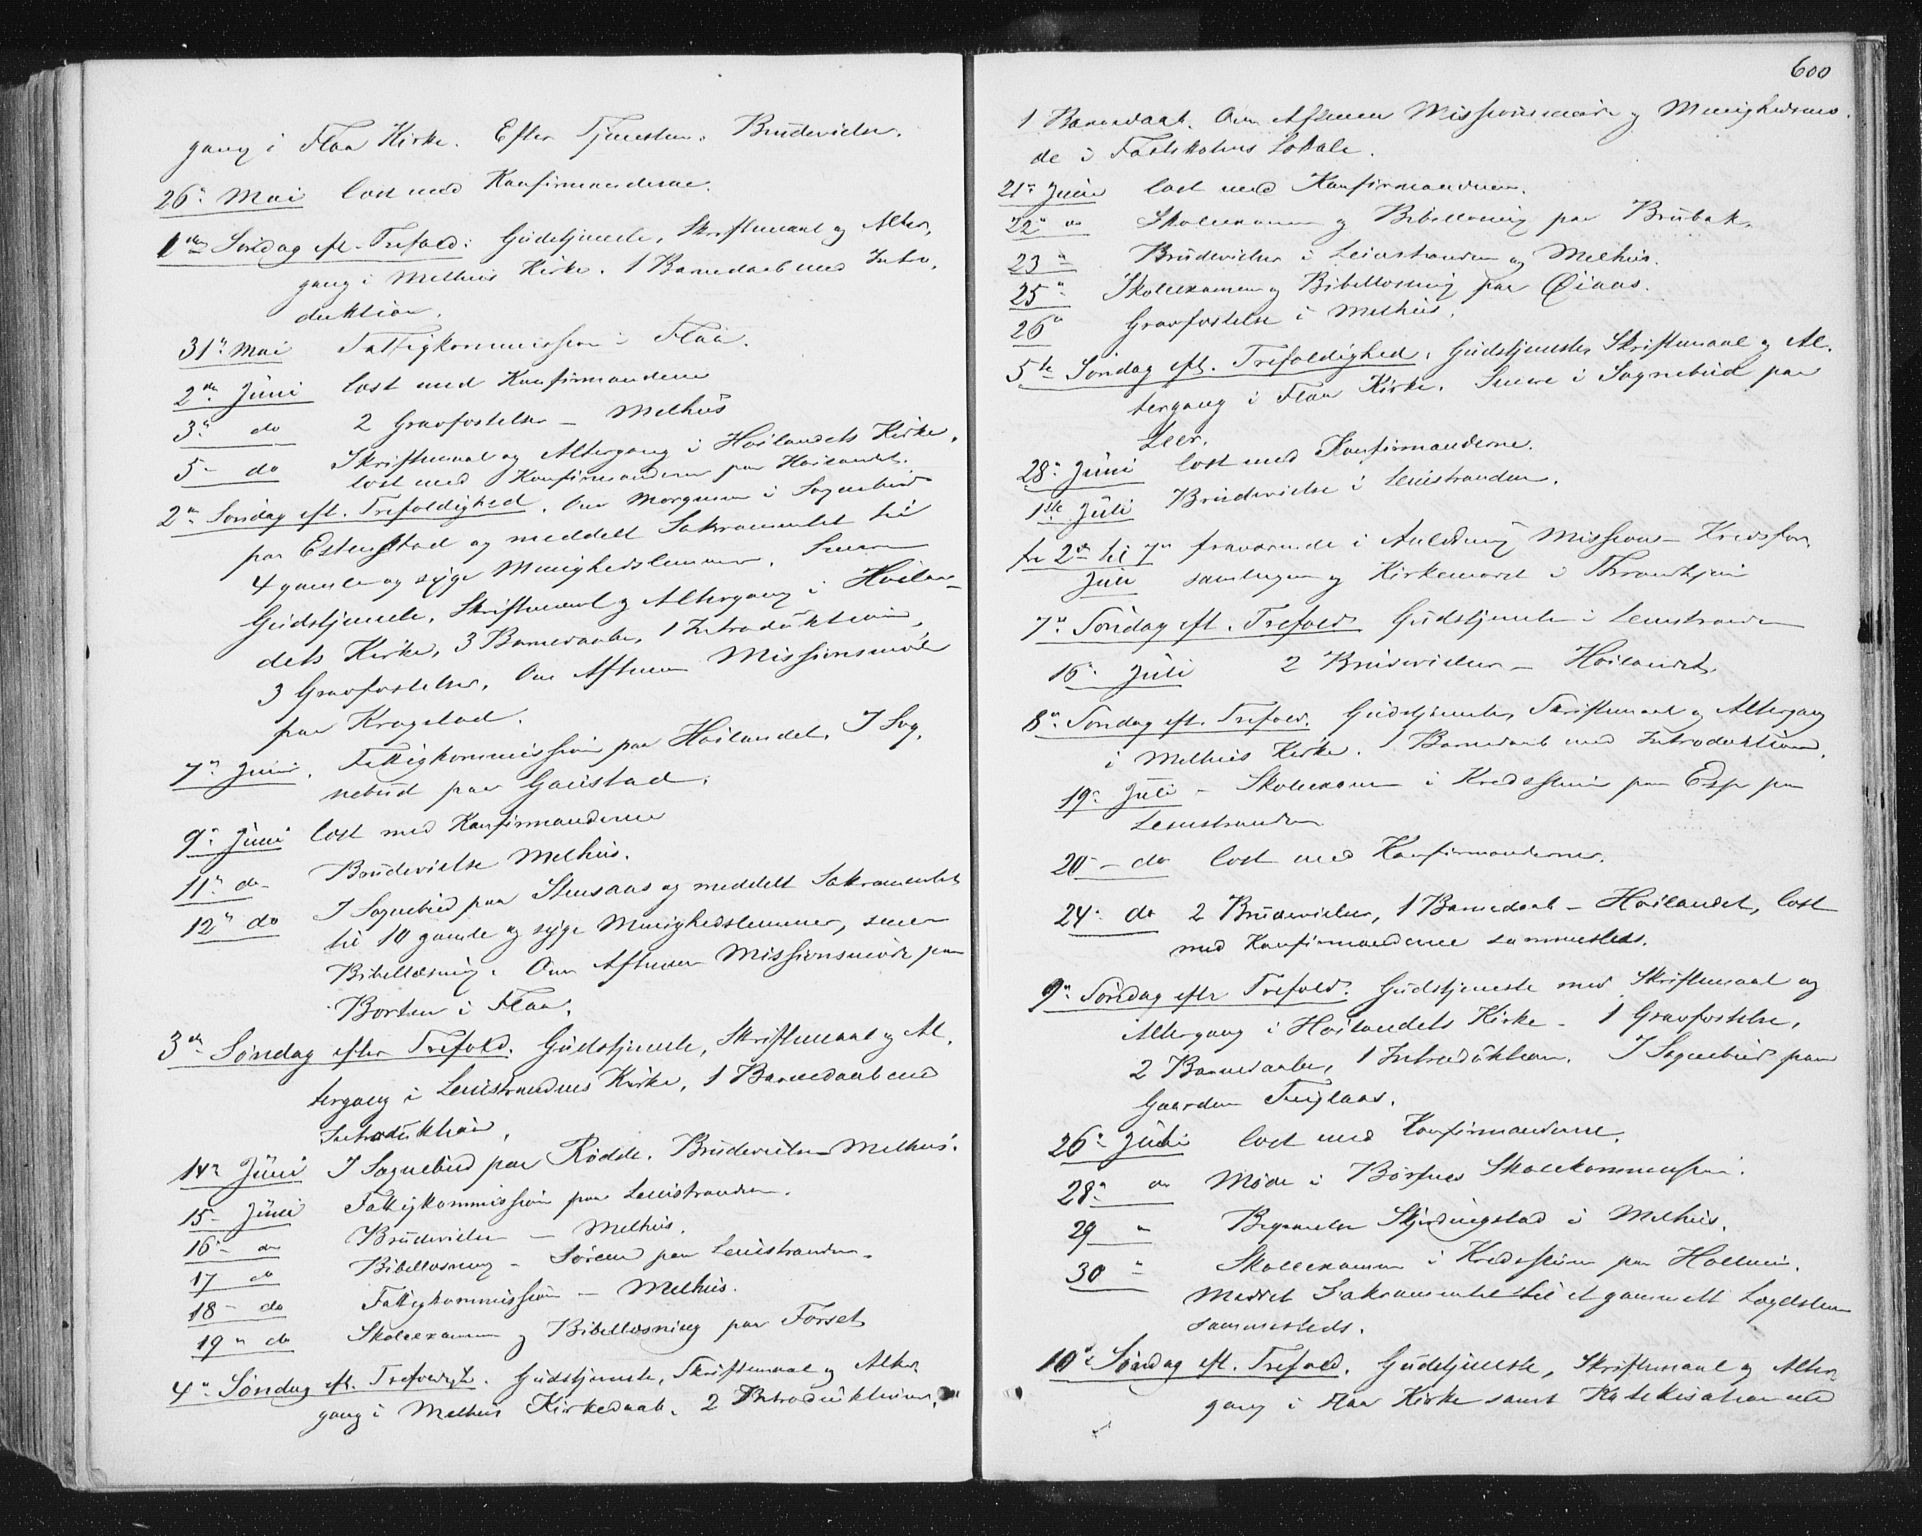 gang i Flaa Kirke. Efter Tjenesten. Brudevielse.
26n Mai læst med Konfirmanderne.
1ste Søndag eft. Trefold: Gudstjeneste, Skriftemaal og Alter,
gang i Melhus Kirke. 1 Barnedaab med Intro,
duktion.
31n Mai Fattigkommission i Flaa.
2den Juni læst med Konfirmanderne
3n do 2 Gravfæstelser – Melhus
5n do Skriftemaal og Altergang i Høilandets Kirke,
læst med Konfirmanderne paa Høilandet.
2n Søndag eft. Trefoldighed. Om Morgenen i Sognebud
paa Estenstad og meddelt Sakramentet til
4 gamle og syge Menighedslemmer. Senere
Gudstjeneste, Skriftemaal og Altergang i Høilan–
dets Kirke, 3 Barnedaabe, 1 Introduktion,
3 Gravfæstelser. Om Aftenen Missionsmøde
paa Kregstad.
7n Juni. Fattigkommission paa Høilandet. I Sog,
nebud paa Gaustad.
9n Juni læst med Konfirmanderne
11n do Brudevielse Melhus.
12n do I Sognebud paa Stensaas og meddelt Sakramentet
til 10 gamle og syge Menighedslemmer, senere
Bibellæsning. Om Aftenen Missionsmøde paa
Borten i Flaa.
3de Søndag efter Trefold. Gudstjeneste, Skriftemaal og Al,
tergang i Leinstrandens Kirke, 1 Barnedaab med
Introduktion.
14n Juni I Sognebud paa Rødde. Brudevielse – Melhus.
15– Juni Fattigkommission paa Leinstranden.
16– do Brudevielse – Melhus.
17 do Bibellæsning – Sørem paa Leinstranden.
18– do Fattigkommission – Melhus.
19n do Skoleexamen og Bibellæsning paa Forset
4n Søndag eft. Trefoldigh. Gudstjeneste, Skriftemaal og Alter
gang i Melhus Kirkedaab. 2 Introduktioner,
600
1 Barnedaab. Om Aftenen Missionsmøde og Menighedsmø,
de i Fastskolens Lokale.
21n Juni læst med Konfirmanderne.
22n do Skoleexamen og Bibellæsning paa Brubak.
23 " Brudevielser i Leinstranden og Melhus.
25 " Skoleexamen og Bibellæsning paa Øiaas.
26n Gravfæstelse i Melhus.
5te Søndag eft. Trefoldighed. Gudstjeneste, Skriftemaal og Al,
tergang i Flaa Kirke. Senere i Sognebud paa
Leer.
28n Juni læst med Konfirmanderne.
1ste Juli Brudevielse i Leinstranden.
fr 2den til 7n fraværende i Anledning Missions–Kredsfor
Juli samlingen og Kirkemødet i Throndhjem
7n Søndag eft. Trefold. Gudstjeneste i Leinstranden
16n Juli 2 Brudevielser – Høilandet.
8n Søndag eft. Trefold. Gudstjeneste, Skriftemaal og Altergang
i Melhus Kirke. 1 Barnedaab med Introduktion.
19n Juli – Skoleexamen i Kredsstuen paa Esp paa
Leinstranden
20– do læst med Konfirmanderne.
24n do 2 Brudevielser, 1 Barnedaab – Høilandet, læst
med Konfirmanderne sammesteds.
9n Søndag efter Trefold. Gudstjeneste med Skriftemaal og
Altergang i Høilandets Kirke – 1 Gravfæstelse,
2 Barnedaabe, 1 Introduktion. I Sognebud paa
Gaarden
26n Juli læst med Konfirmanderne.
28n do Møde i Børsnes Skolekommission.
29 " Begravelse Skjerdingstad i Melhus.
30 " Skoleexamen i Kredsstuen paa Hollum.
Meddelt Sakramentet til et gammelt Lægdslem
sammesteds.
10n Søndag eft. Trefold. Gudstjeneste, Skriftemaal og Alter,
gang i Flaa Kirke samt Katekisation med